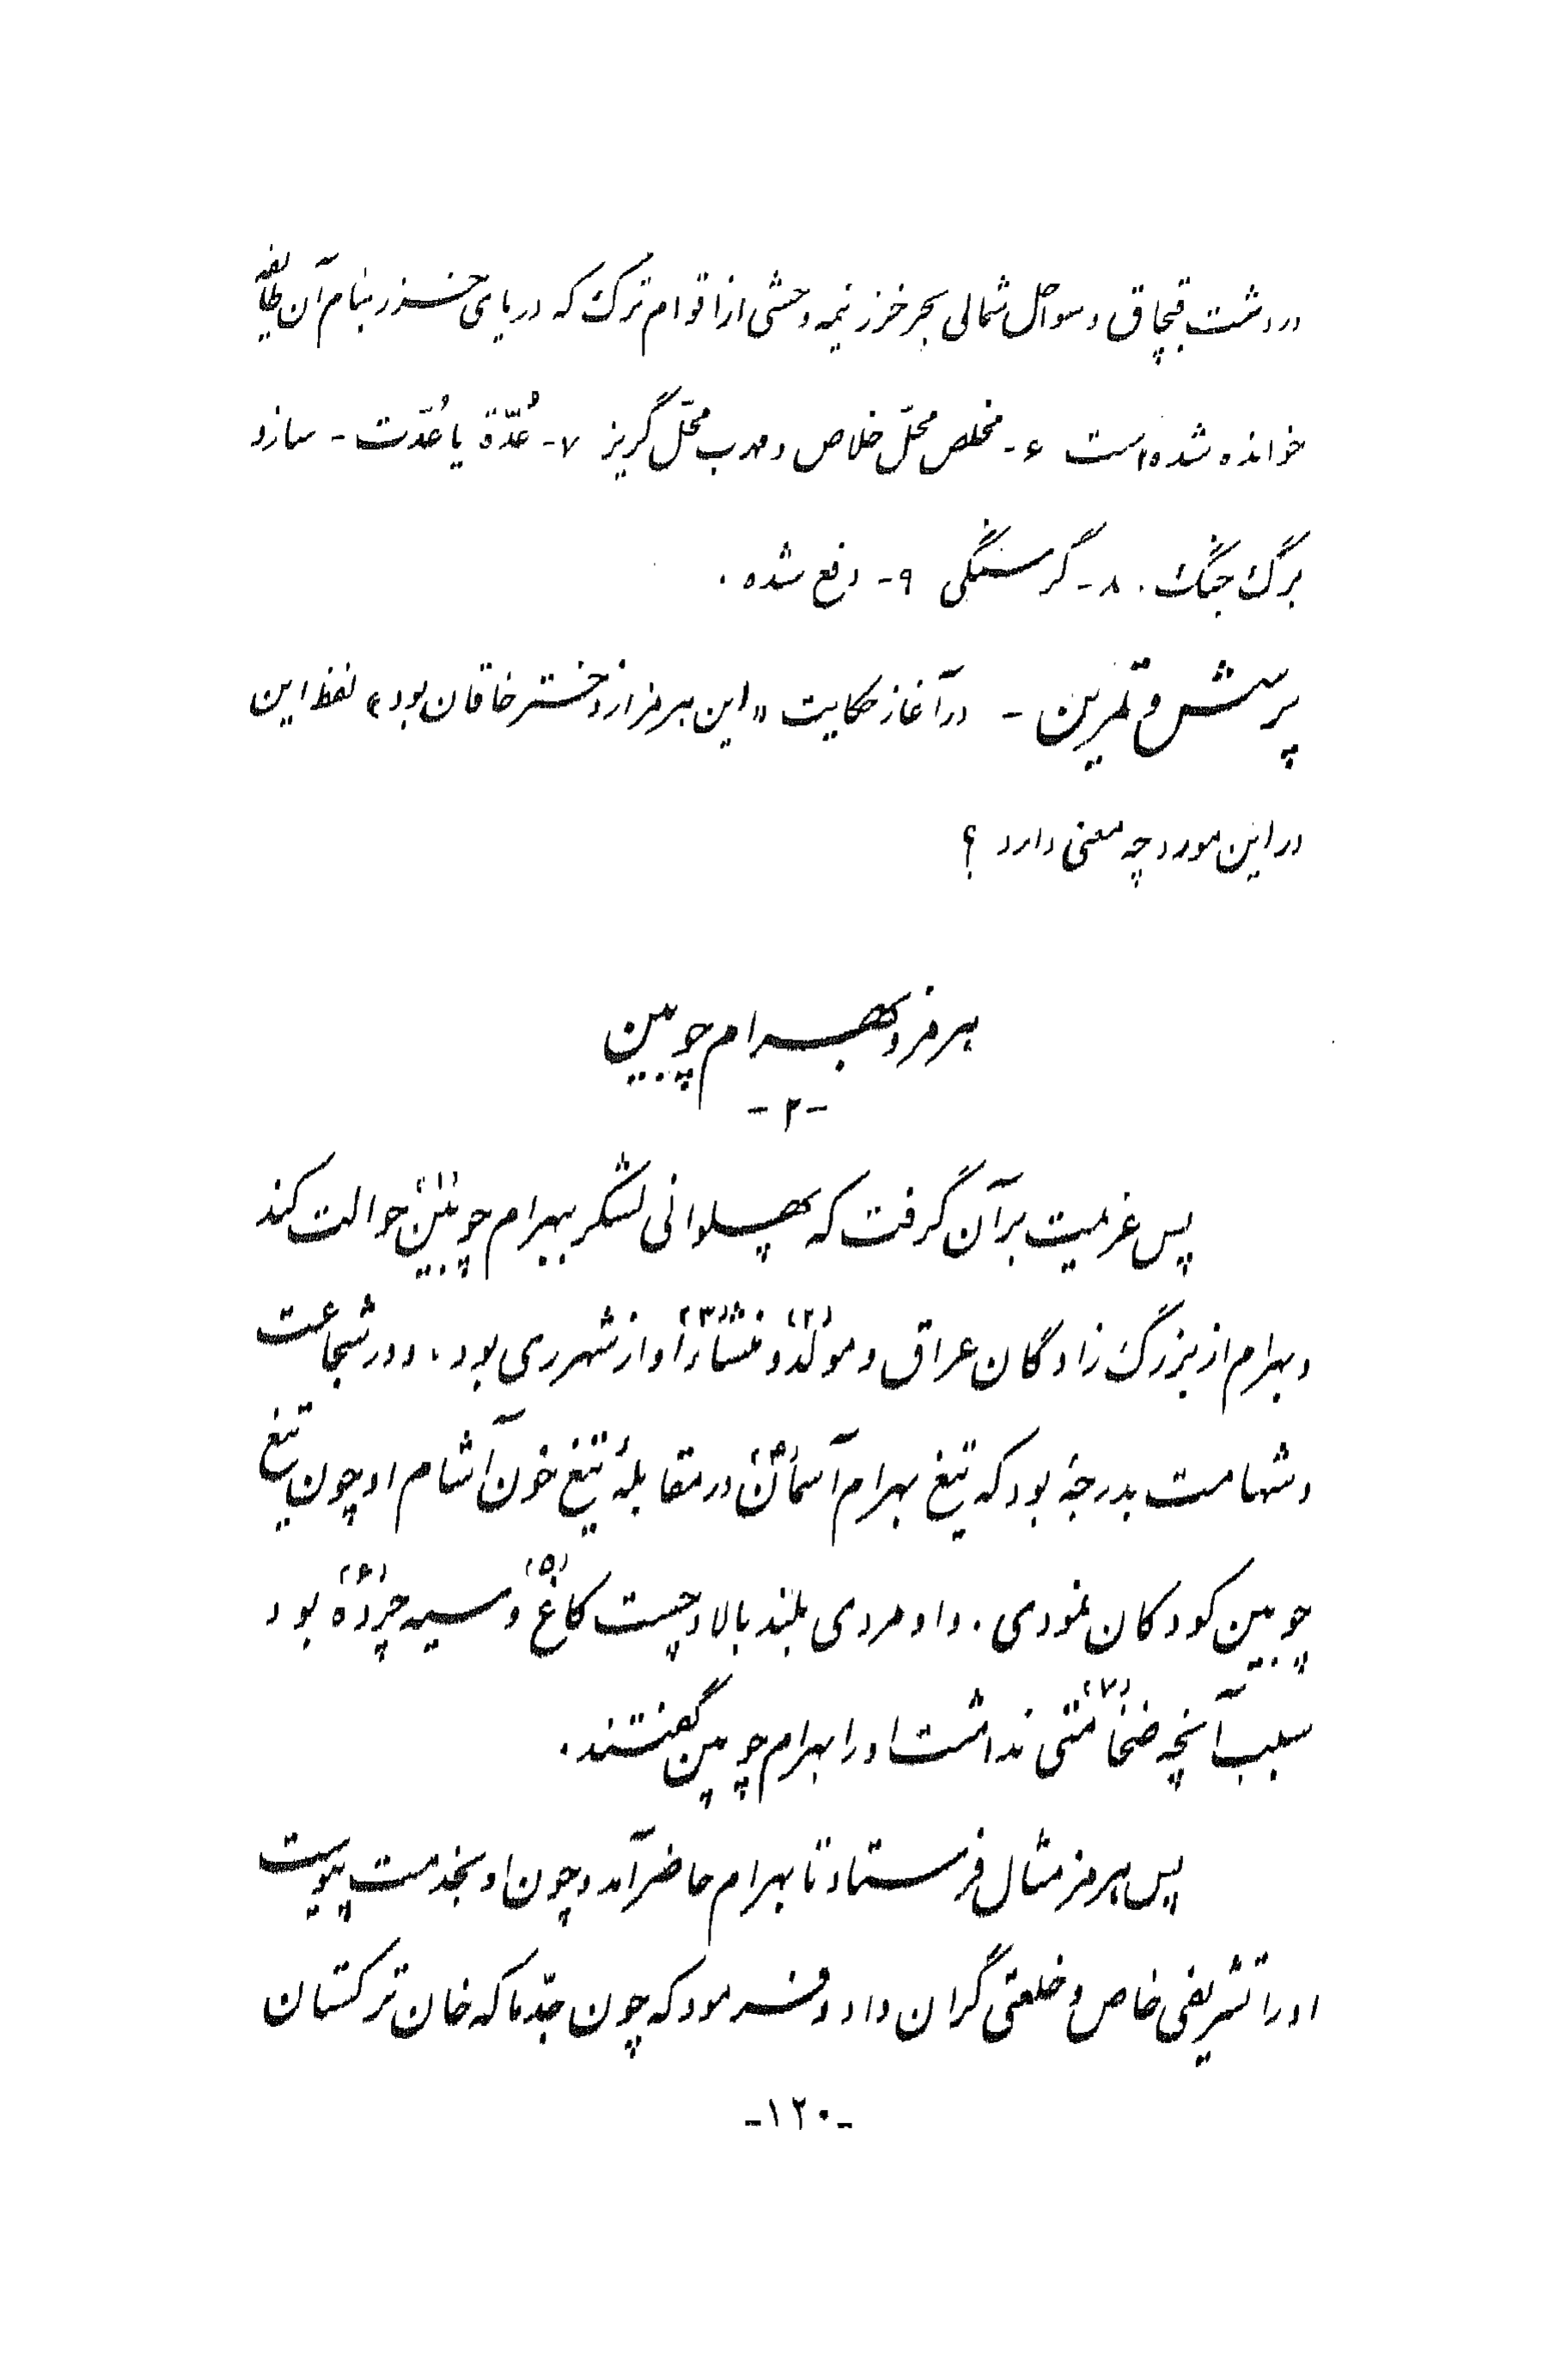 در دشت قبچاق و سواحل شمالی بحر خزر نیمه وحشی از اقوام ترک که دریای خزر بنام آن طایفه
خوانده شده است ۶- مخلص محلّ خلاص و مهرب محلّ گریز ۷- عُدّة یا عُدّت - ساز و
برگ جنگ. ۸- گرسنگی ۹- دفع شده.
پرسش و تمرین - در آغاز حکایت «این هرمز از دختر خاقان بود» لفظ این
در این مورد چه معنی دارد ؟
هرمز و بهرام چوبین
-۲-
پس عزیمت برآن گرفت که پهلوانی لشکر ببهرام چوبین (۱) حوالت کند
و بهرام از بزرگ زادگان عراق و مولد (۲) و منشاء (۳) او از شهر ری بود. و در شجاعت
و شهامت بدرجۀ بود که تیغ بهرام آسمان (۴) در مقابلۀ تیغ خون آشام او چون تیغ
چوبین کودکان نمودی. و او مردی بلند بالا و چست کاغ (۵) و سیه چرده (۶) بود
سبب آنچه ضخامتی (۷) نداشت او را بهرام چوبین گفتند.
پس هرمز مثال فرستاد تا بهرام حاضر آمد و چون او بخدمت پیوست
او را تشریفی خاص و خلعتی گران داد و فرمود که چون جدّ ما که خان ترکستان
-۱۲۰-